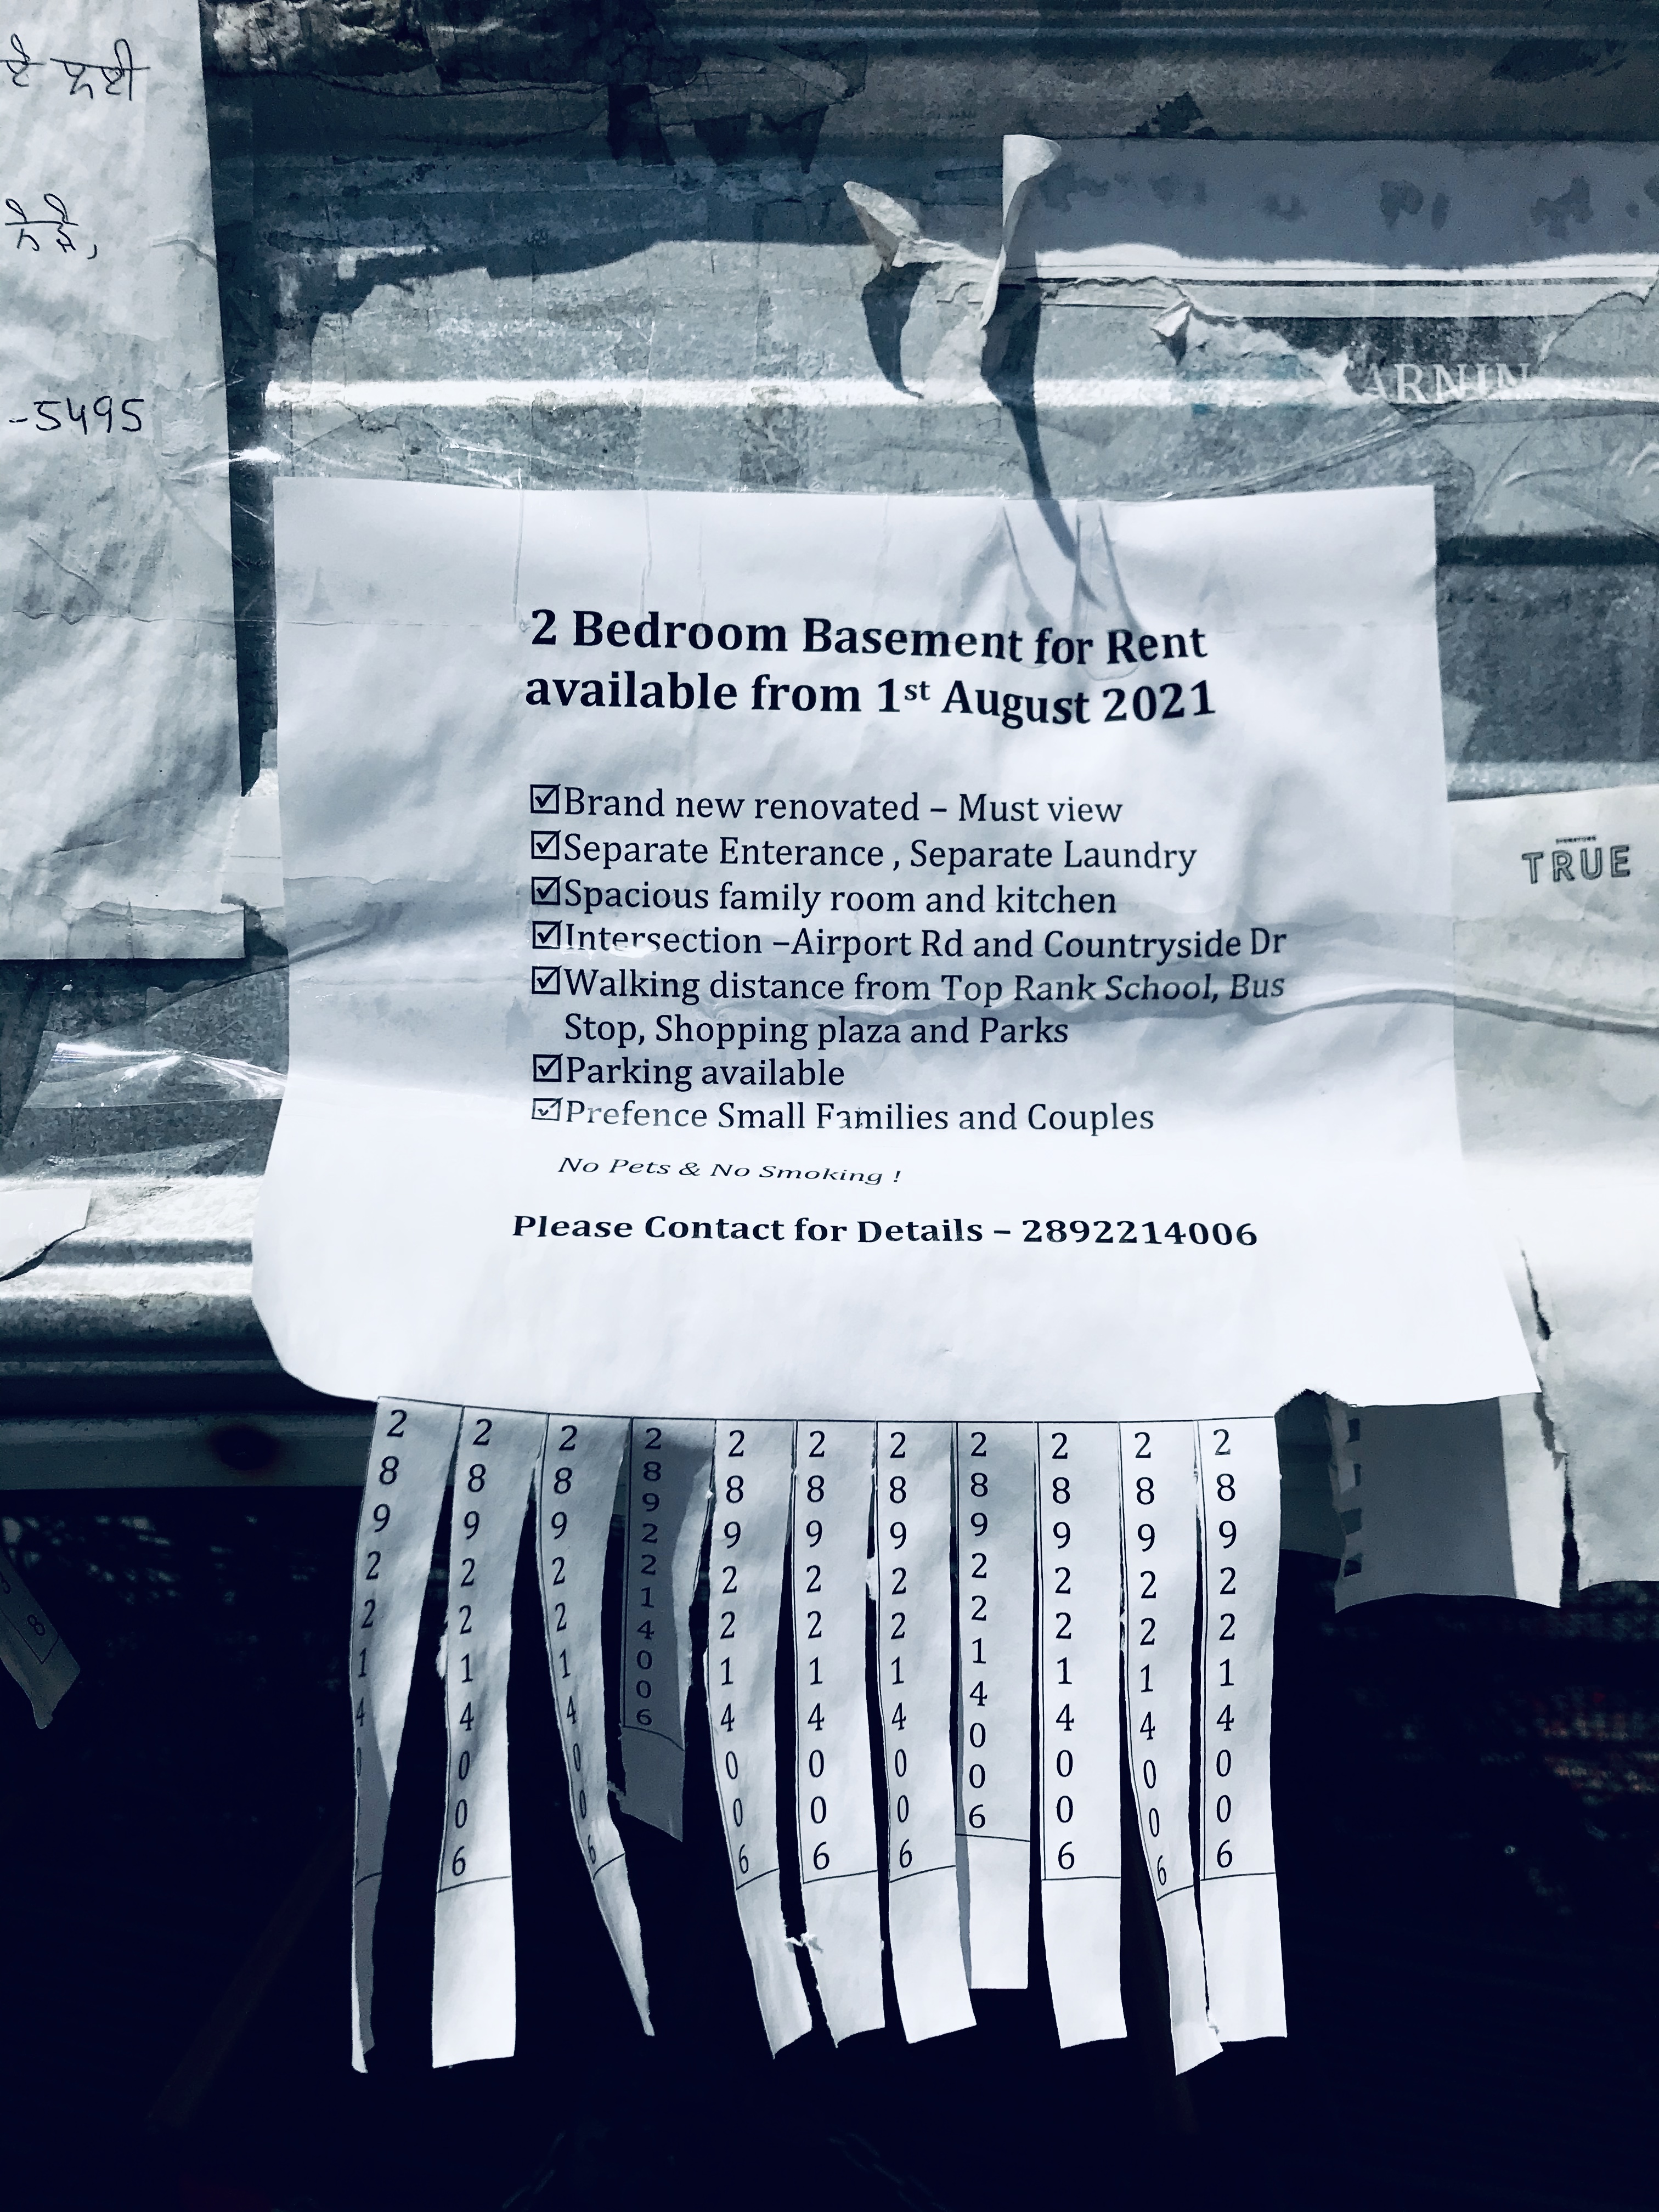 ਲਈ
-5495
ARNIN
2 Bedroom Basement for Rent
available from 1st August 2021
☑Brand new renovated – Must view
☑Separate Enterance , Separate Laundry
☑Spacious family room and kitchen
☑Intersection –Airport Rd and Countryside Dr
☑Walking distance from Top Rank School, Bus
Stop, Shopping plaza and Parks
☑Parking available
☑Prefence Small Families and Couples
No Pets & No Smoking !
Please Contact for Details – 2892214006
TRUE
2892214006
2892214006
2892214006
2892214006
2892214006
2892214006
2892214006
2892214006
2892214006
2892214006
2892214006
8